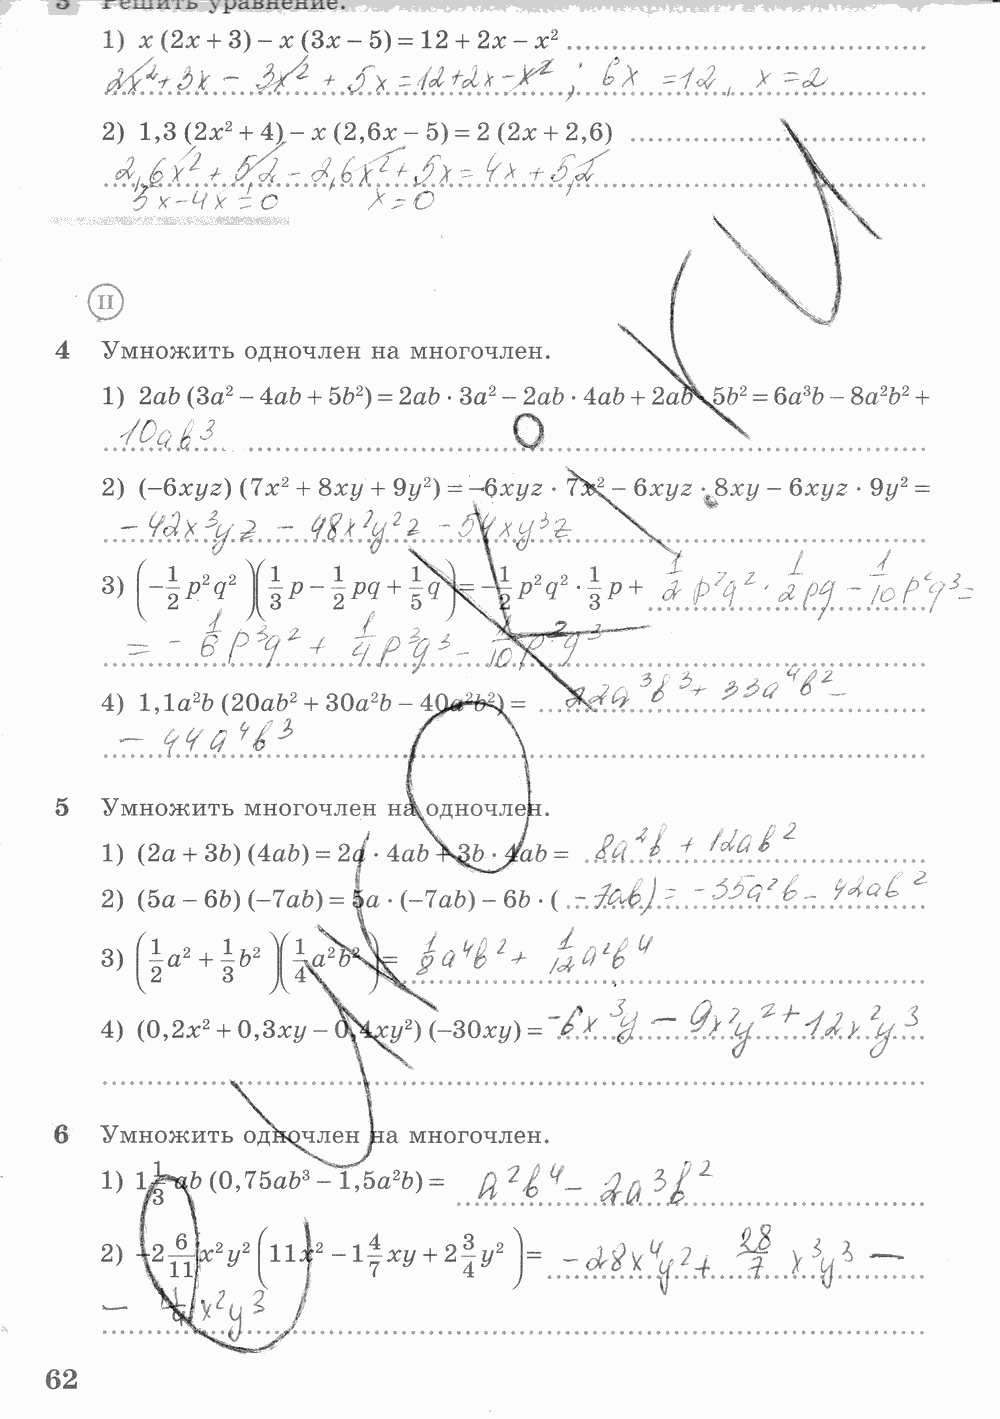 3 Решить уравнение.
1) x (2x + 3) – x (3x – 5) = 12 + 2x – x²
2x² + 3x – 3x² + 5x = 12 + 2x – x² ; 6x = 12, x = 2
2) 1,3 (2x² + 4) – x (2,6x – 5) = 2 (2x + 2,6)
2,6x² + 5,2 – 2,6x² + 5x = 4x + 5,2
5x – 4x = 0 x = 0
II
4 Умножить одночлен на многочлен.
1) 2ab (3a² – 4ab + 5b²) = 2ab · 3a² – 2ab · 4ab + 2ab · 5b² = 6a³b – 8a²b² +
10ab³
2) (–6xyz) (7x² + 8xy + 9y²) = –6xyz · 7x² – 6xyz · 8xy – 6xyz · 9y² =
– 42x³yz – 48x²y²z – 54xy³z
3) (–1/2 p²q²)(1/3 p – 1/2 pq + 1/5 q) = –1/2 p²q² · 1/3 p + 1/2 p²q² · 1/2 pq – 1/10 p²q³ =
= – 1/6 p³q² + 1/4 p³q³ – 1/10 p²q³
4) 1,1a²b (20ab² + 30a²b – 40a²b²) = 22a³b³ + 33a⁴b² –
– 44a⁴b³
5 Умножить многочлен на одночлен.
1) (2a + 3b) (4ab) = 2a · 4ab + 3b · 4ab = 8a²b + 12ab²
2) (5a – 6b) (–7ab) = 5a · (–7ab) – 6b · ( –7ab) = –35a²b – 42ab²
3) (1/2 a² + 1/3 b²)(1/4 a²b²) = 1/8 a⁴b² + 1/12 a²b⁴
4) (0,2x² + 0,3xy – 0,4xy²) (–30xy) = –6x³y – 9x²y² + 12x²y³
6 Умножить одночлен на многочлен.
1) 1 1/3 ab (0,75ab³ – 1,5a²b) = a²b⁴ – 2a³b²
2) –2 6/11 x²y² (11x² – 1 4/7 xy + 2 3/4 y²) = – 28x⁴y² + 28/7 x³y³ –
62
uroki.ru